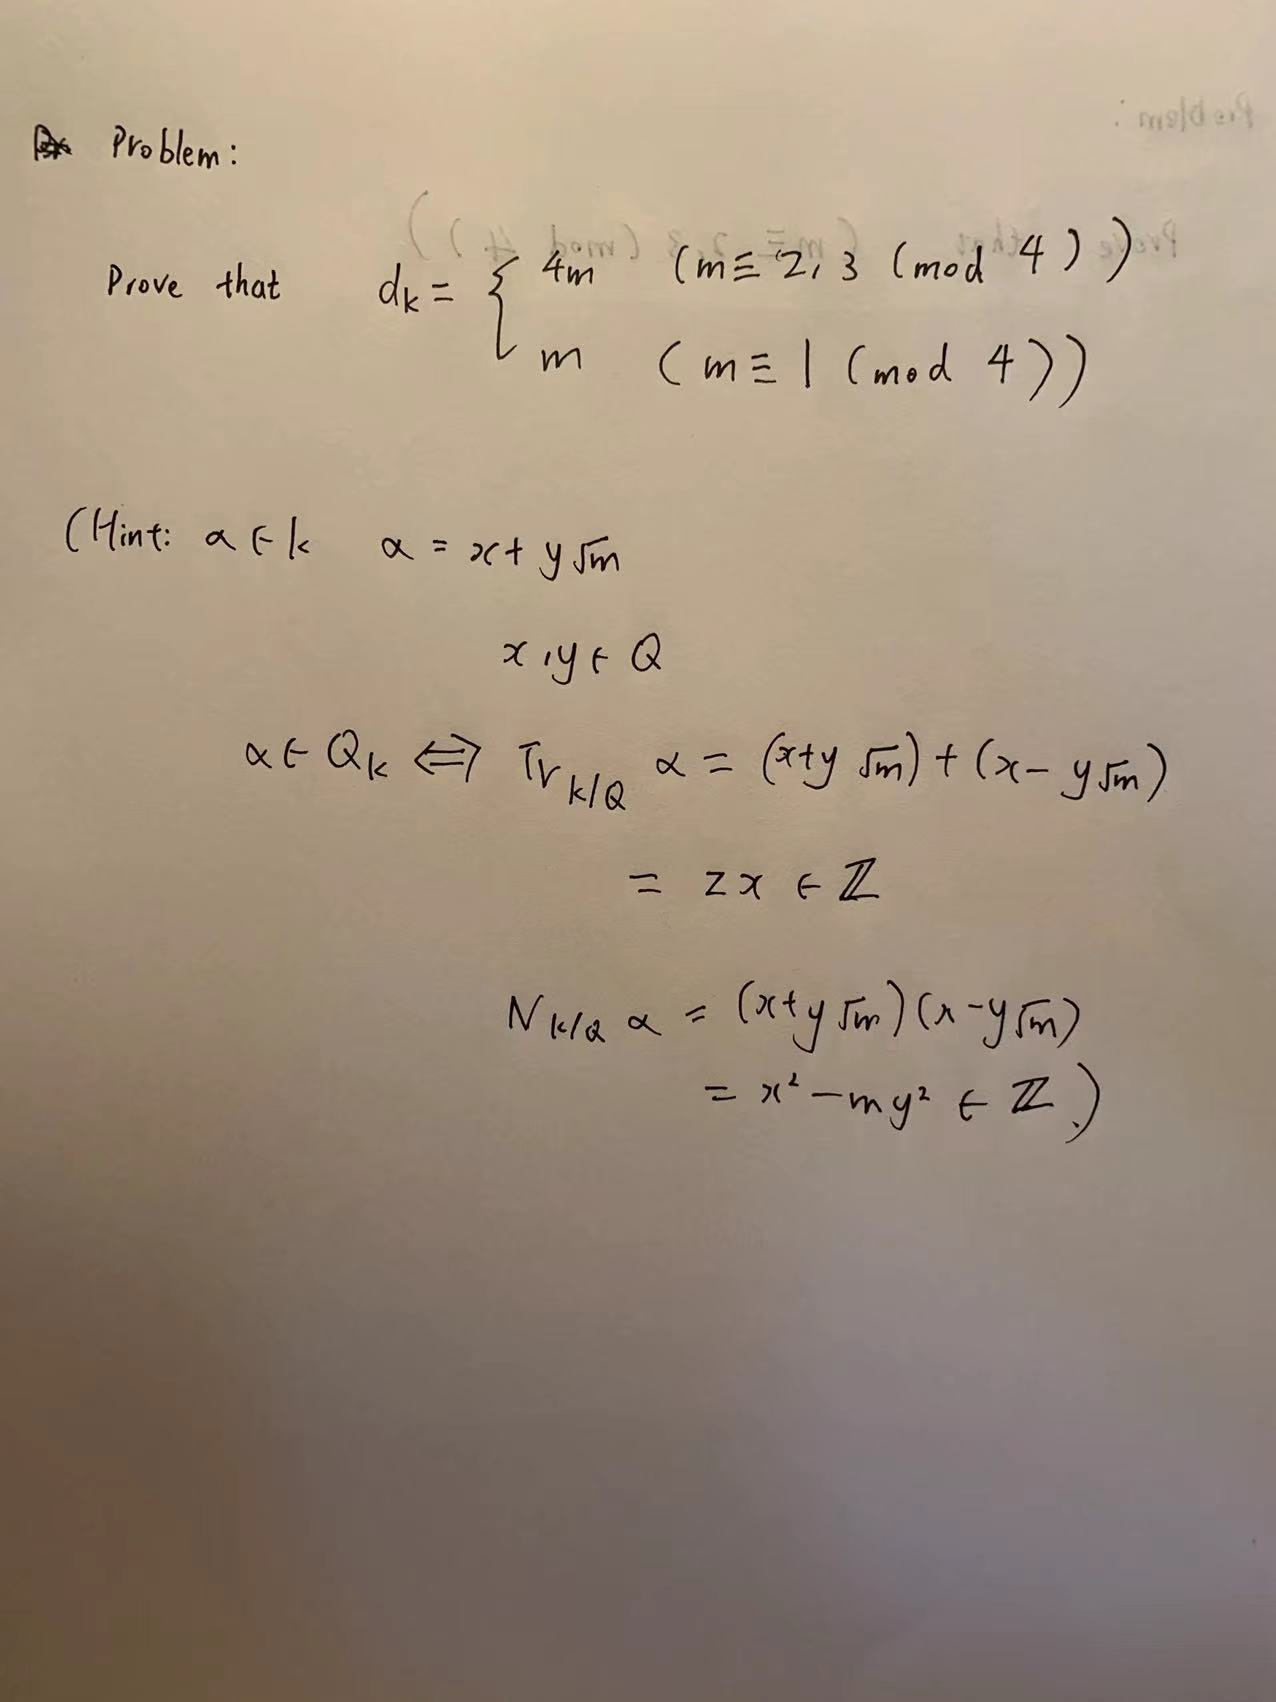 Problem:
Prove that d_k = { 4m (m ≡ 2, 3 (mod 4))
m (m ≡ 1 (mod 4))
(Hint: α ∈ k α = x + y√m
x, y ∈ Q
α ∈ Q_k ⟺ Tr_{k/Q} α = (x+y√m) + (x - y√m)
= 2x ∈ ℤ
N_{k/Q} α = (x+y√m)(x-y√m)
= x² - my² ∈ ℤ.)